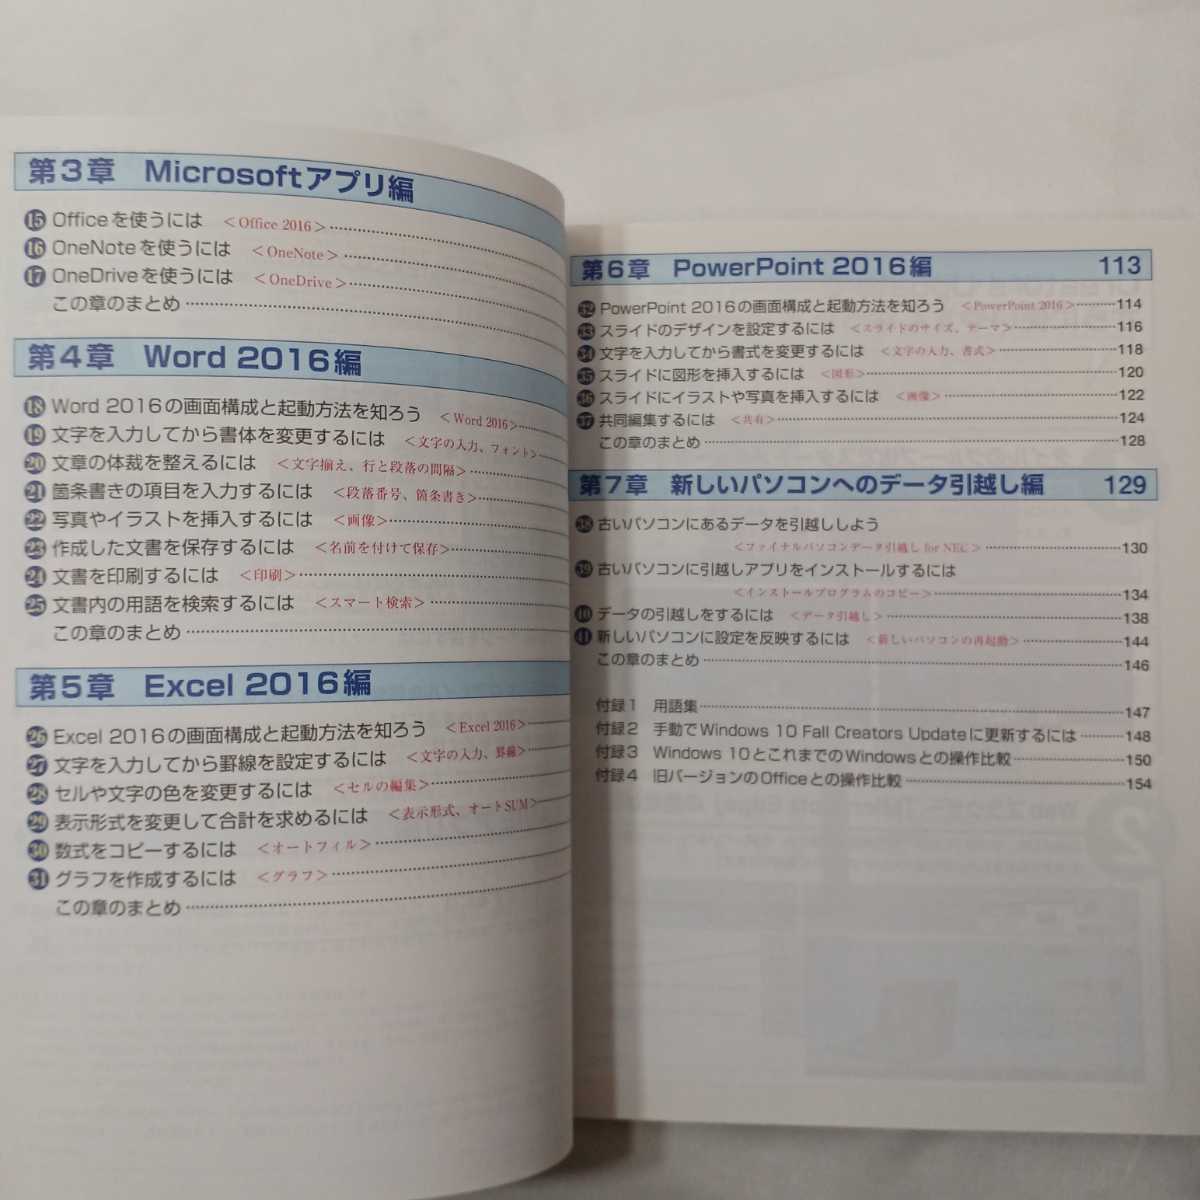 第3章 Microsoftアプリ編
⑮ Officeを使うには <Office 2016>
⑯ OneNoteを使うには <OneNote>
⑰ OneDriveを使うには <OneDrive>
この章のまとめ
第4章 Word 2016編
⑱ Word 2016の画面構成と起動方法を知ろう <Word 2016>
⑲ 文字を入力してから書体を変更するには <文字の入力、フォント>
⑳ 文章の体裁を整えるには <文字揃え、行と段落の間隔>
㉑ 箇条書きの項目を入力するには <段落番号、箇条書き>
㉒ 写真やイラストを挿入するには <画像>
㉓ 作成した文書を保存するには <名前を付けて保存>
㉔ 文書を印刷するには <印刷>
㉕ 文書内の用語を検索するには <スマート検索>
この章のまとめ
第5章 Excel 2016編
㉖ Excel 2016の画面構成と起動方法を知ろう <Excel 2016>
㉗ 文字を入力してから罫線を設定するには <文字の入力、罫線>
㉘ セルや文字の色を変更するには <セルの編集>
㉙ 表示形式を変更して合計を求めるには <表示形式、オートSUM>
㉚ 数式をコピーするには <オートフィル>
㉛ グラフを作成するには <グラフ>
この章のまとめ
第6章 PowerPoint 2016編 113
㉜ PowerPoint 2016の画面構成と起動方法を知ろう <PowerPoint 2016> 114
㉝ スライドのデザインを設定するには <スライドのサイズ、テーマ> 116
㉞ 文字を入力してから書式を変更するには <文字の入力、書式> 118
㉟ スライドに図形を挿入するには <図形> 120
㊱ スライドにイラストや写真を挿入するには <画像> 122
㊲ 共同編集するには <共有> 124
この章のまとめ 128
第7章 新しいパソコンへのデータ引越し編 129
㊳ 古いパソコンにあるデータを引越ししよう
<ファイナルパソコンデータ引越し for NEC> 130
㊴ 古いパソコンに引越しアプリをインストールするには
<インストールプログラムのコピー> 134
㊵ データの引越しをするには <データ引越し> 138
㊶ 新しいパソコンに設定を反映するには <新しいパソコンの再起動> 144
この章のまとめ 146
付録1 用語集 147
付録2 手動でWindows 10 Fall Creators Updateに更新するには 148
付録3 Windows 10とこれまでのWindowsとの操作比較 150
付録4 旧バージョンのOfficeとの操作比較 154